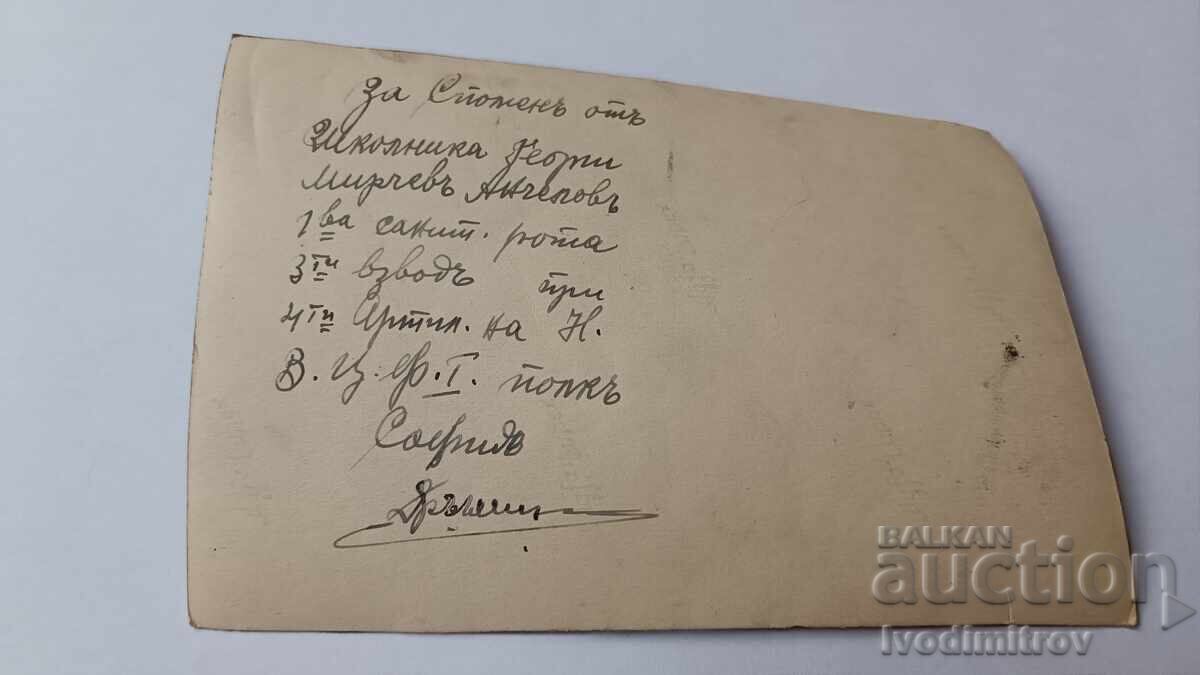 За Споменъ отъ
Школника Георги
Мирчевъ Ангеловъ
1ва санит. рота
3ти взводъ при
4ти Артил. на Н.
В. Ц. Ф. I. полкъ
София
BALKAN
auction
Ivodimitrov